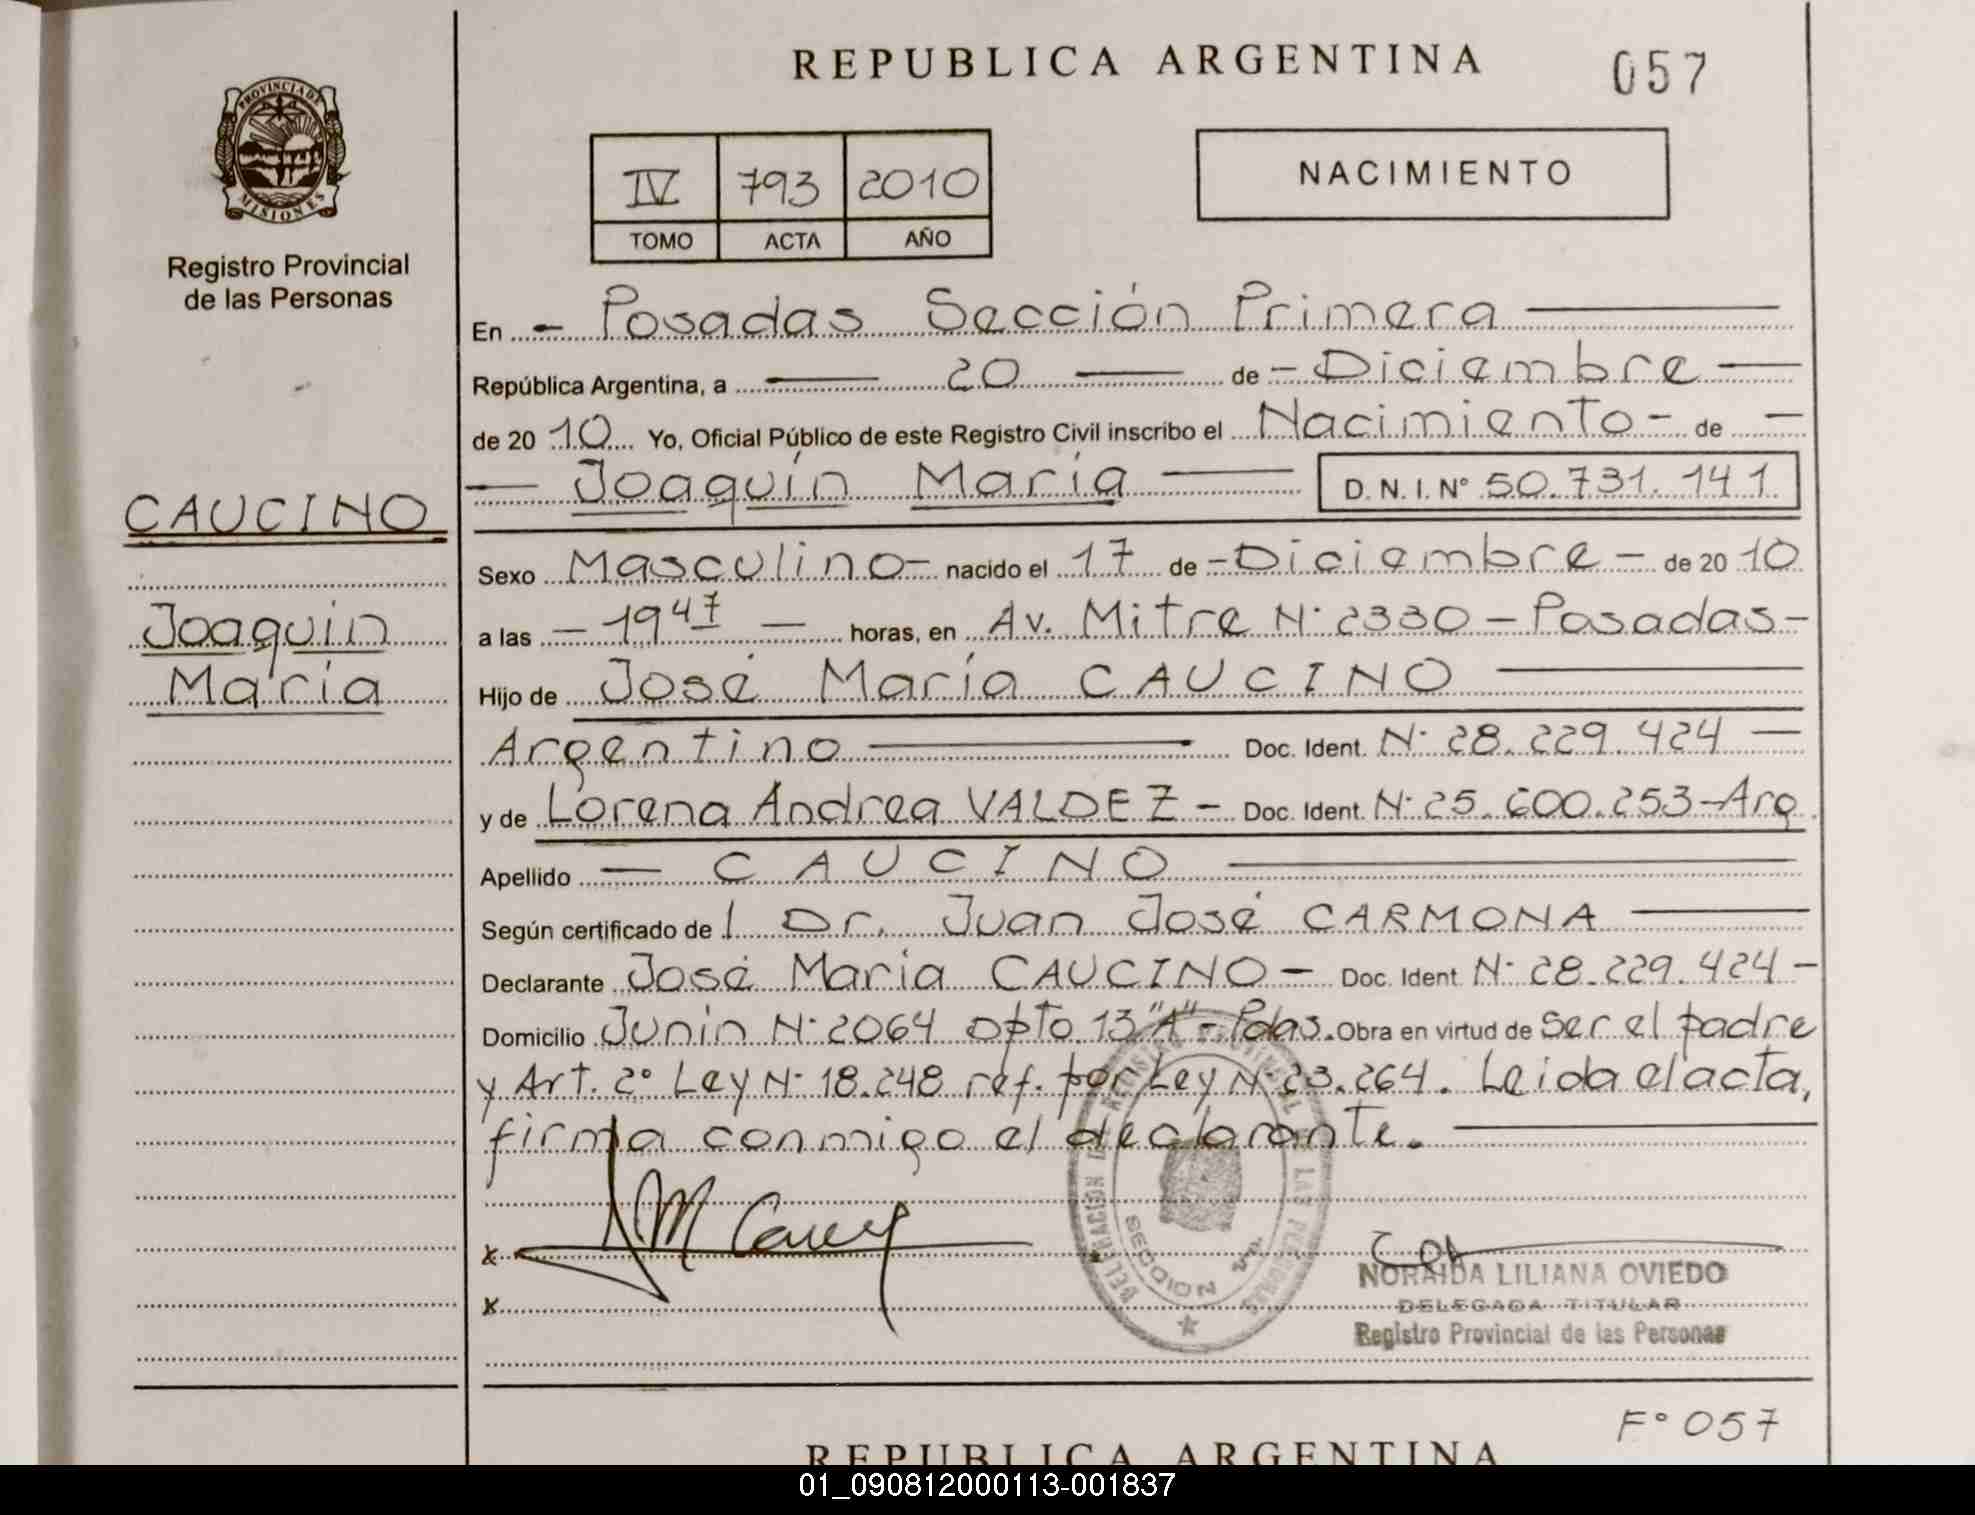 REPUBLICA ARGENTINA
057
PROVINCIA DE
MISIONES
Registro Provincial
de las Personas
IV 793 2010
TOMO ACTA AÑO
NACIMIENTO
En - Posadas Sección Primera
República Argentina, a 20 de - Diciembre
de 20 10 Yo, Oficial Público de este Registro Civil inscribo el Nacimiento - de -
Joaquín María D.N.I. N° 50.731.141
CAUCINO
Joaquín
María
Sexo Masculino - nacido el 17 de - Diciembre - de 20 10
a las - 19 47 - horas, en Av. Mitre N° 2330 - Posadas -
Hijo de José María CAUCINO
Argentino Doc. Ident. N° 28.229.424
y de Lorena Andrea VALDEZ - Doc. Ident. N° 25.600.253 - Arg.
Apellido - CAUCINO
Según certificado de l Dr. Juan José CARMONA
Declarante José María CAUCINO - Doc. Ident. N° 28.229.424 -
Domicilio Junín N° 2064 dpto 13 "A" - Pdas. Obra en virtud de ser el padre
y Art. 2° Ley N° 18.248 ref. por Ley N° 23.264. Leida el acta,
firma conmigo el declarante.
x
x
DELEGACION DEL REGISTRO PROVINCIAL DE LAS PERSONAS
SECCION 1ra
NORAIDA LILIANA OVIEDO
DELEGADA TITULAR
Registro Provincial de las Personas
F° 057
REPUBLICA ARGENTINA
01_090812000113-001837